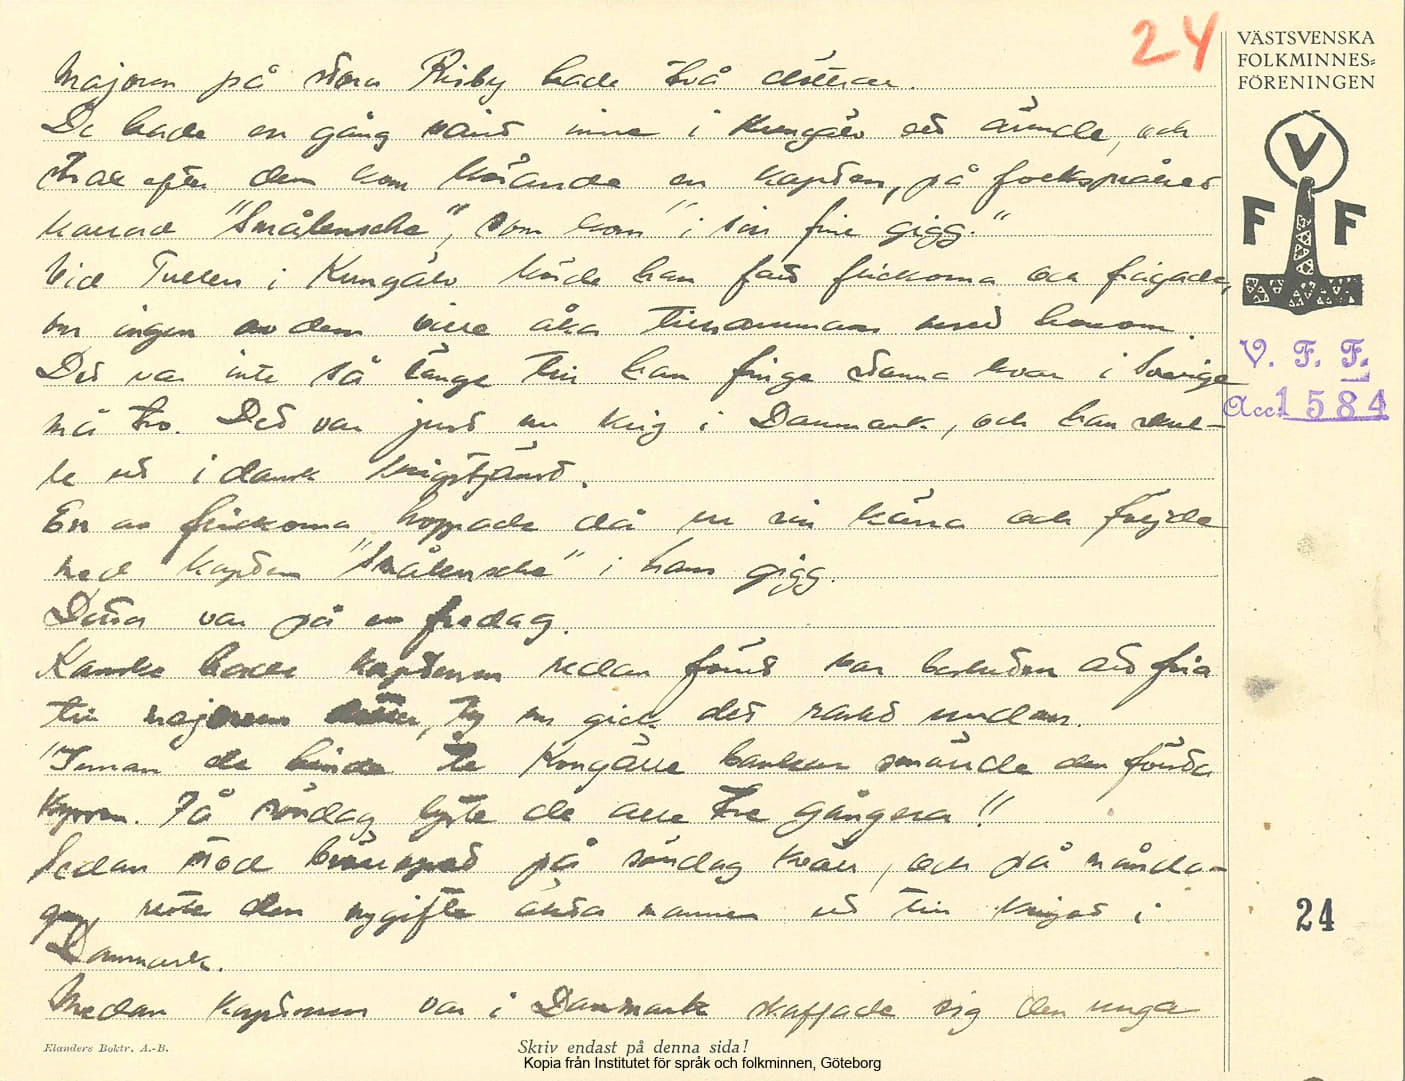 24
VÄSTSVENSKA
FOLKMINNES=
FÖRENINGEN
V
F F
V. F. F.
Acc. 1584
Majoren på stora Risby hade två döttrar.
De hade en gång varit inne i Kungälv ett ärende, och
strax efter dem kom körande en kapten, på folkspråket
kallad "Smålensche", som kom "i sin fine gigg."
Vid Tullen i Kungälv hörde han fatt flickorna och frågade,
om ingen av dem ville åka tillsammans med honom.
Det var inte så länge till han finge stanna kvar i Sverige
må tro. Det var just nu krig i Danmark, och han skul-
le ut i dansk krigstjänst.
En av flickorna hoppade då ur sin kärra och följde
med kapten "Smålensche" i hans gigg.
Detta var på en fredag.
Kanske hade kaptenen redan förut varit besluten att fria
till majorens dotter, ty nu gick det raskt undan.
"Innan de hinde te Kongälle banken smällde den första
kyssen. På söndag lyste de alle tre gångera!"
Sedan stod bröllopet på söndag kväll, och på månda-
gen reste den nygifte äkta mannen ut till kriget i
Danmark.
Medan kaptenen var i Danmark skaffade sig den unga
24
Elanders Boktr. A.-B.
Skriv endast på denna sida!
Kopia från Institutet för språk och folkminnen, Göteborg